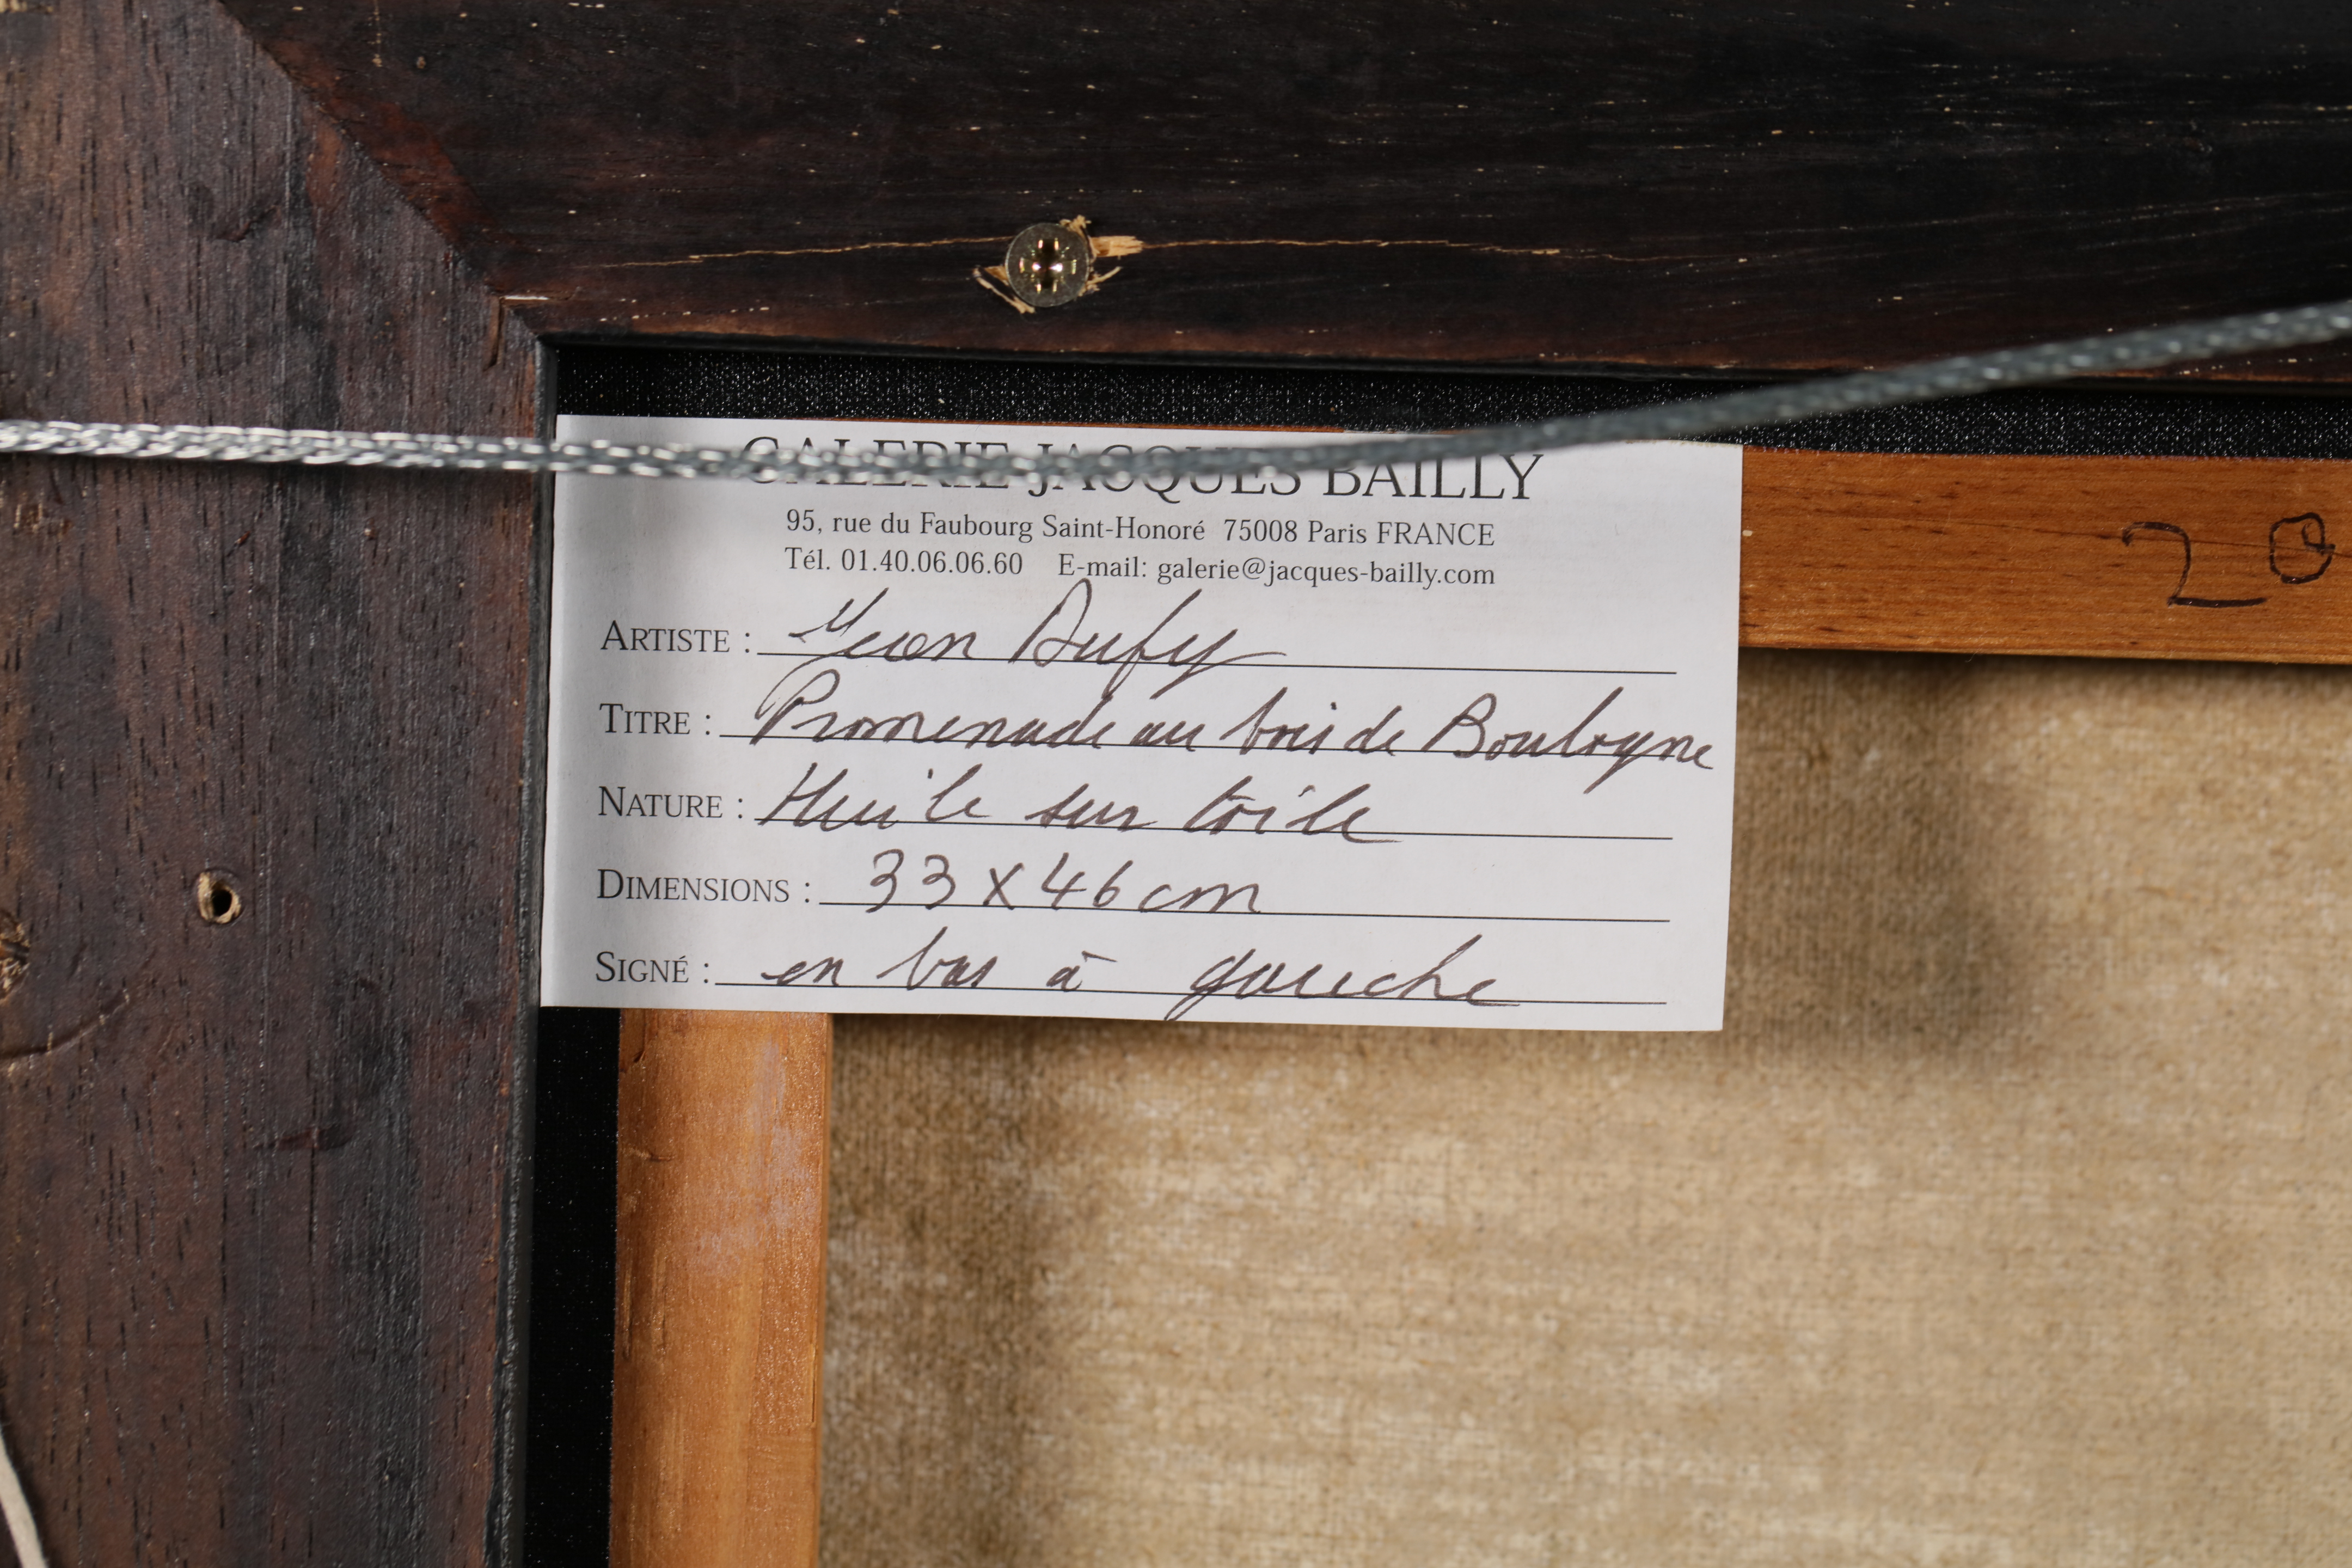 GALERIE JACQUES BAILLY
95, rue du Faubourg Saint-Honoré 75008 Paris FRANCE
Tél. 01.40.06.06.60 E-mail: galerie@jacques-bailly.com
ARTISTE : Jean Dufy
TITRE : Promenade au bois de Boulogne
NATURE : Huile sur toile
DIMENSIONS : 33 x 46 cm
SIGNÉ : en bas à gauche
20